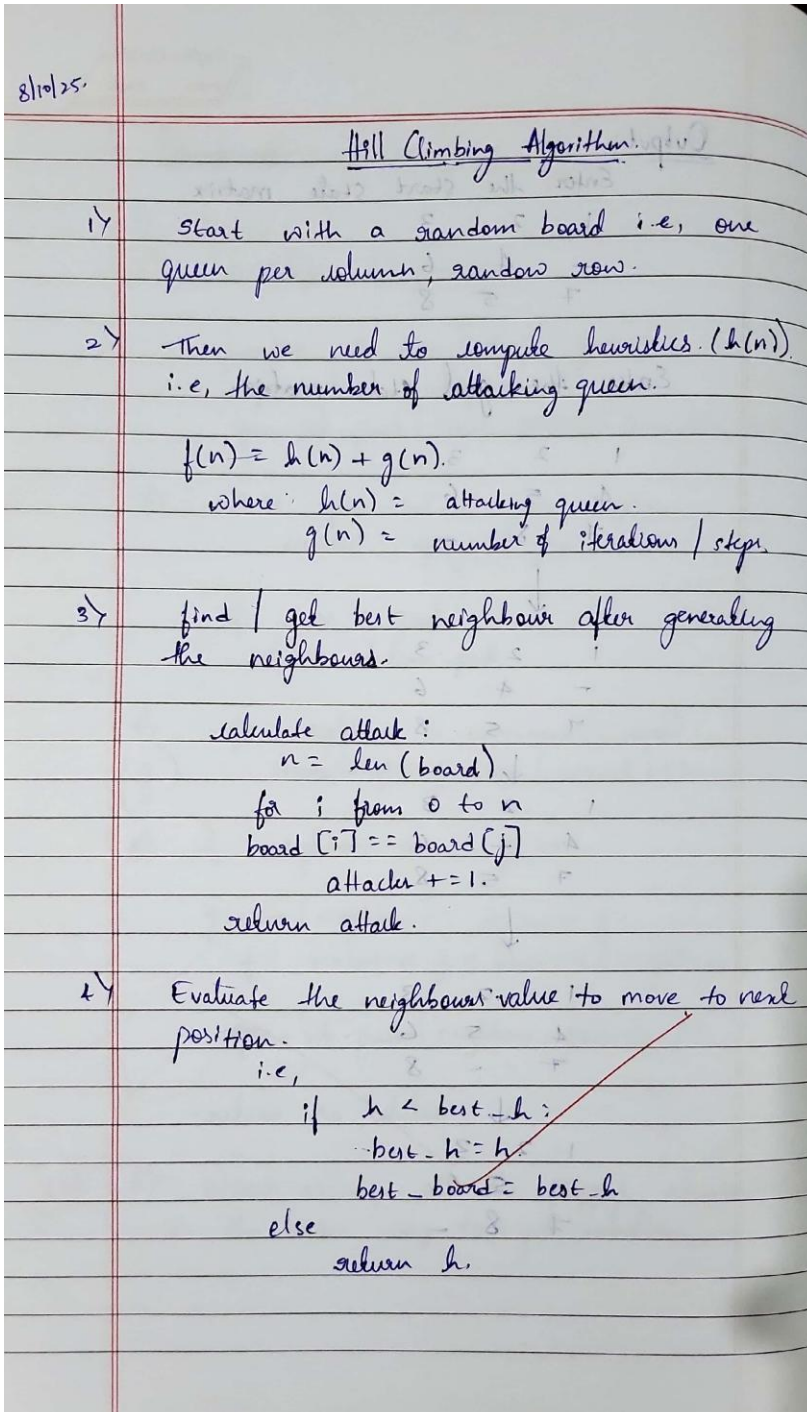 8/10/25.
Hill Climbing Algorithm.
1) Start with a random board i.e, one
queen per column, random row.
2) Then we need to compute heuristics. (h(n)).
i.e, the number of attacking queen.
f(n) = h(n) + g(n).
where: h(n) = attacking queen.
g(n) = number of iterations / steps.
3) find / get best neighbour after generating
the neighbours.
calculate attack :
n = len (board).
for i from 0 to n
board [i] == board [j]
attacks += 1.
return attack.
4) Evaluate the neighbours value to move to next
position.
i.e,
if h < best_h :
best_h = h.
best_board = best_h
else
return h.